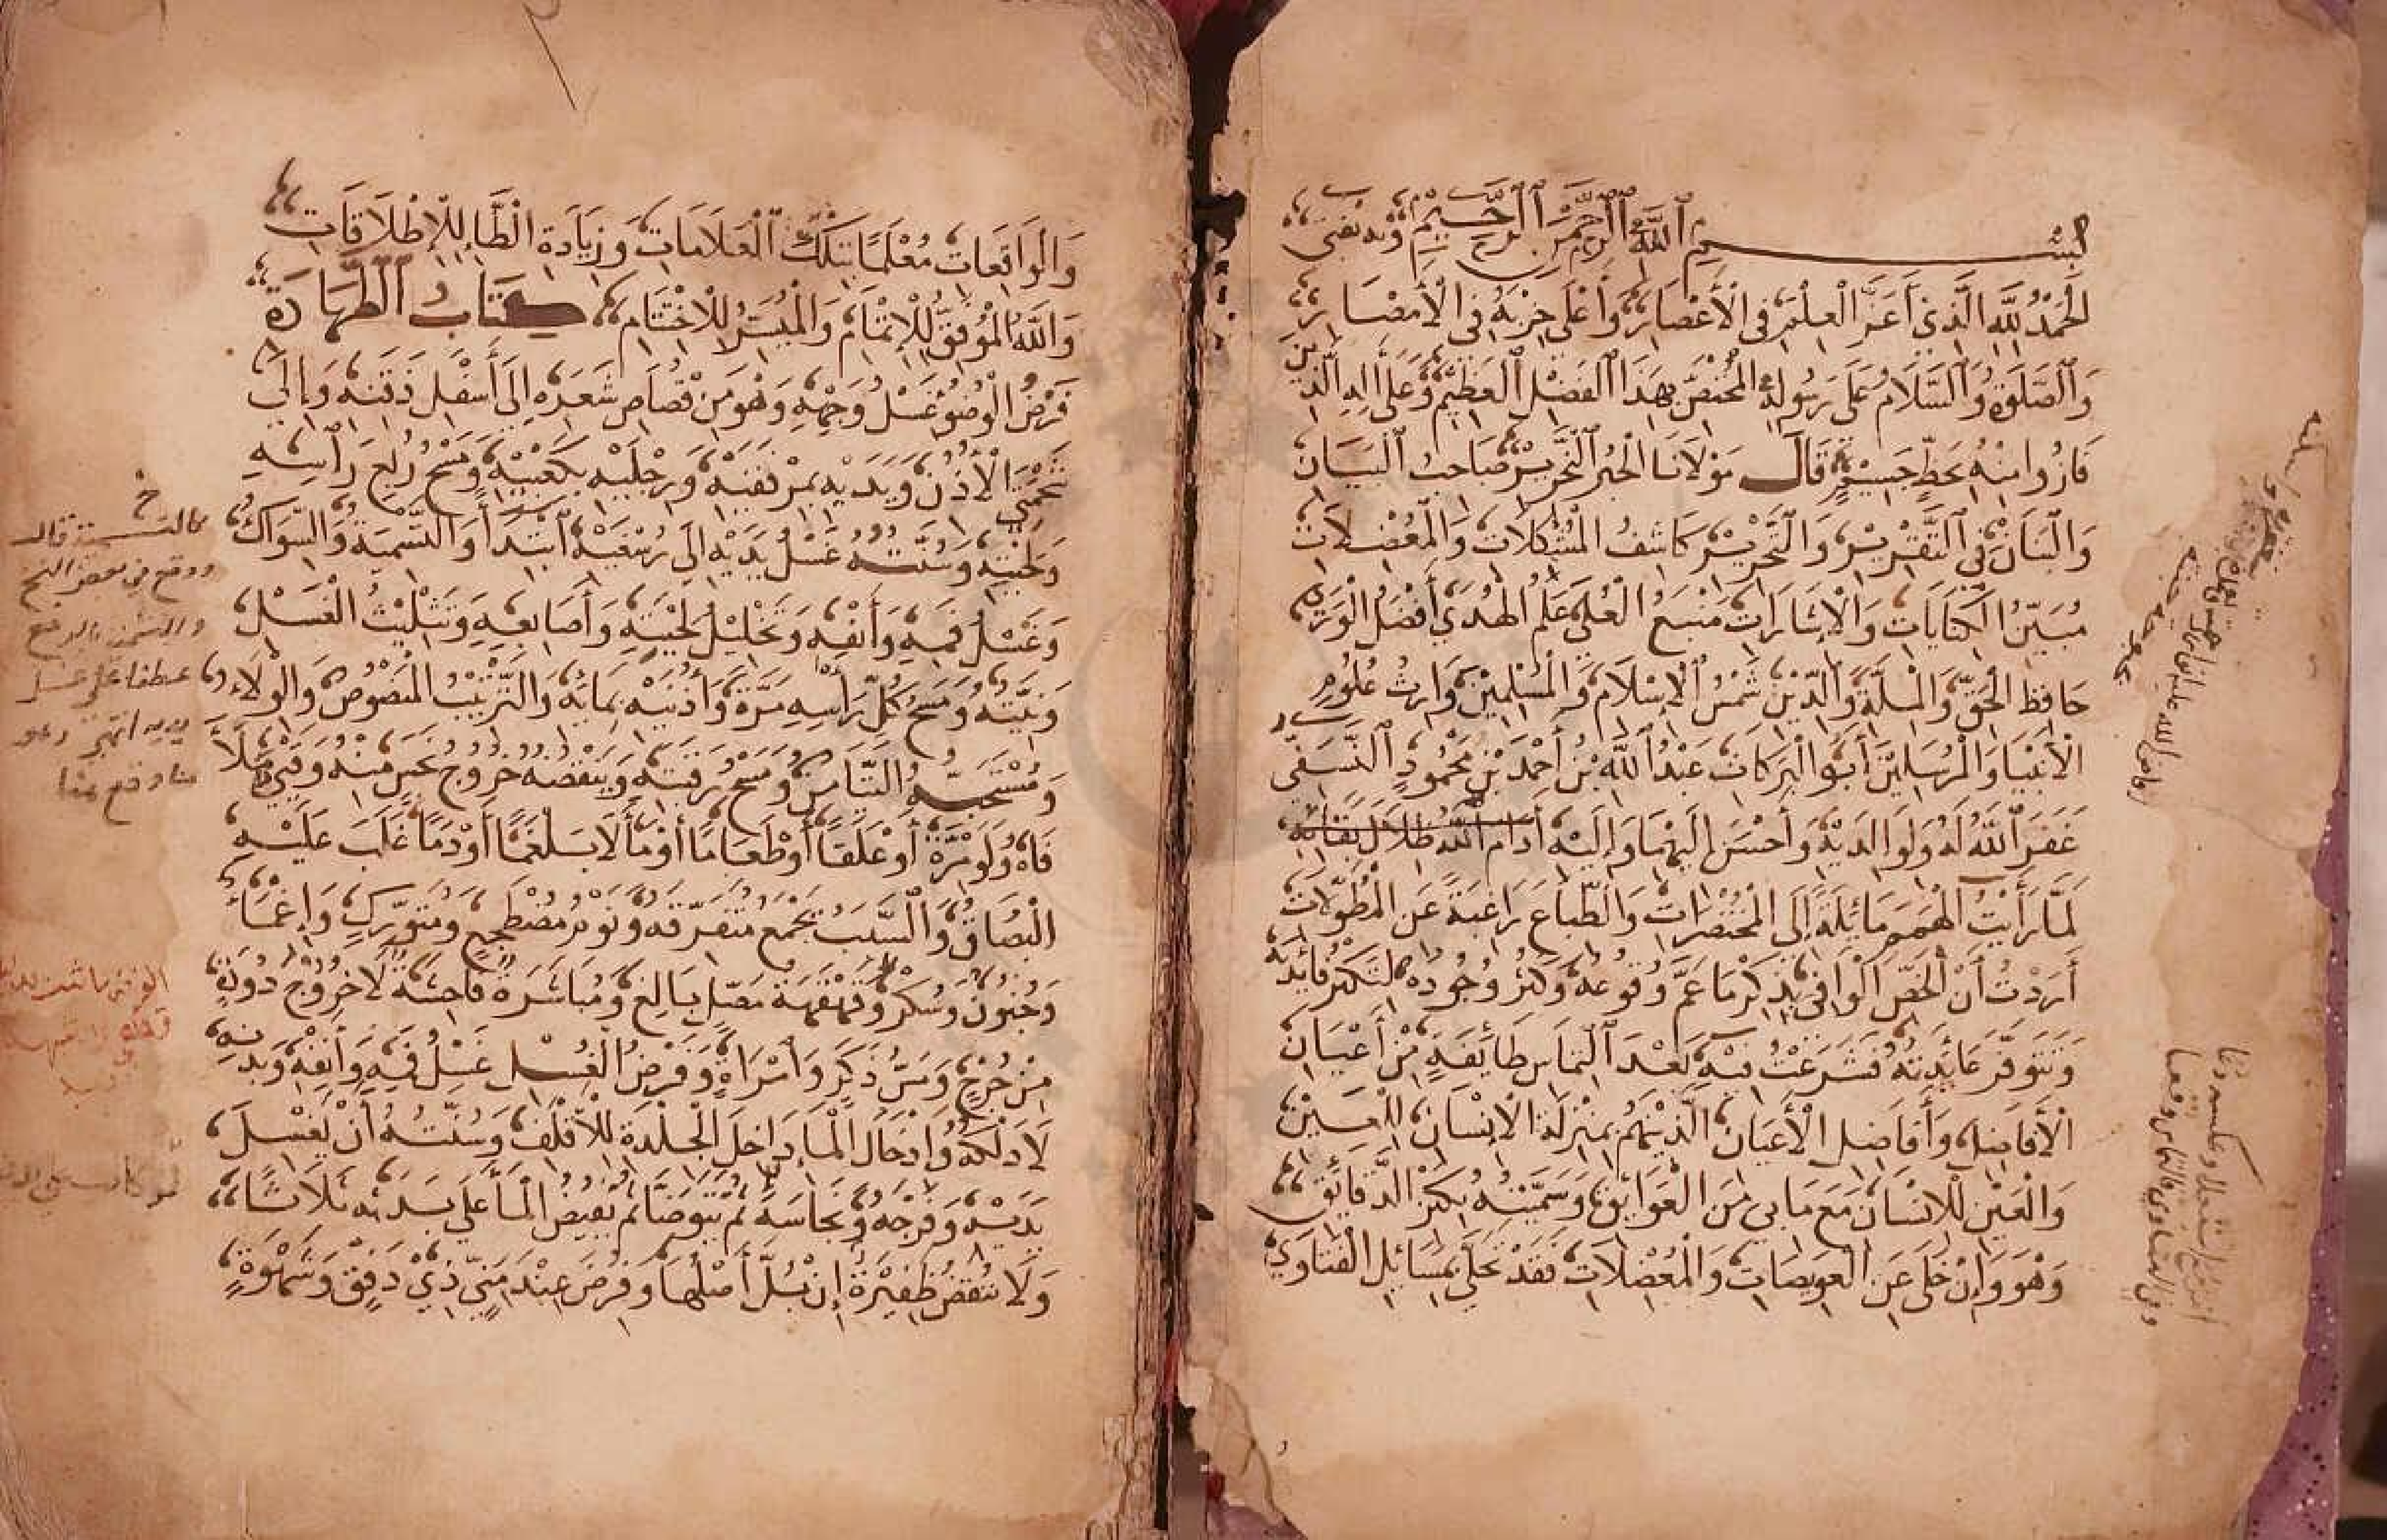 بِسْمِ ٱللَّهِ ٱلرَّحْمَٰنِ ٱلرَّحِيمِ وَبِهِ ثِقَتِي
اَلْحَمْدُ لِلَّهِ الَّذِي أَعَزَّ الْعِلْمَ فِي الْأَعْصَارِ وَأَعْلَى حِزْبَهُ فِي الْأَمْصَارِ
وَٱلصَّلَوةُ وَٱلسَّلَامُ عَلَى رَسُولِهِ الْمُخْتَصِّ بِهَذَا ٱلْفَضْلِ ٱلْعَظِيمِ وَعَلَى آلِهِ الَّذِينَ
فَازُوا مِنْهُ بِحَظٍّ جَسِيمٍ قَالَ مَوْلَانَا الْحَبْرُ ٱلنِّحْرِيرُ صَاحِبُ ٱلْبَيَانِ
وَٱلْبَنَانِ فِي ٱلتَّقْرِيرِ وَٱلتَّحْرِيرِ كَاشِفُ الْمُشْكِلَاتِ وَالْمُعْضِلَاتِ
مُبَيِّنُ الْكِنَايَاتِ وَالْإِشَارَاتِ مَنْبَعُ الْعُلَى عَلَمُ الْهُدَى أَفْضَلُ الْوَرَى
حَافِظُ الْحَقِّ وَالْمِلَّةِ وَالدِّينِ شَمْسُ ٱلْإِسْلَامِ وَالْمُسْلِمِينَ وَارِثُ عُلُومِ
الْأَنْبِيَا وَالْمُرْسَلِينَ أَبُو الْبَرَكَاتِ عَبْدُ ٱللَّهِ بْنُ أَحْمَدَ بْنِ مَحْمُودٍ ٱلنَّسَفِيُّ
غَفَرَ ٱللَّهُ لَهُ وَلِوَالِدَيْهِ وَأَحْسَنَ إِلَيْهِمَا وَإِلَيْهِ أَدَامَ ٱللَّهُ ظِلَالَ بَقَائِهِ
لَمَّا رَأَيْتُ الْهِمَمَ مَائِلَةً إِلَى الْمُخْتَصَرَاتِ وَالطِّبَاعَ رَاغِبَةً عَنِ الْمُطَوَّلَاتِ
أَرَدْتُ أَنْ أُلَخِّصَ الْوَافِيَ بِذِكْرِ مَا عَمَّ وُقُوعُهُ وَكَثُرَ وُجُودُهُ لِتَكْثُرَ فَائِدَتُهُ
وَتَتَوَفَّرَ عَائِدَتُهُ فَشَرَعْتُ فِيهِ بَعْدَ ٱلْتِمَاسِ طَائِفَةٍ مِنْ أَعْيَانِ
الْأَفَاضِلِ وَأَفَاضِلِ الْأَعْيَانِ الَّذِينَ هُمْ بِمَنْزِلَةِ الْإِنْسَانِ لِلْعَيْنِ
وَالْعَيْنِ لِلْإِنْسَانِ مَعَ مَا بِي مِنَ الْعَوَائِقِ وَسَمَّيْتُهُ بِكَنْزِ الدَّقَائِقِ
وَهُوَ وَإِنْ خَلَى عَنِ الْعَوِيصَاتِ وَالْمُعْضِلَاتِ فَقَدْ تَحَلَّى بِمَسَائِلِ الْفَتَاوَى
وَالْوَاقِعَاتِ مُعْلَمًا بِتِلْكَ ٱلْعَلَامَاتِ وَزِيَادَةِ الطَّاءِ لِلْإِطْلَاقَاتِ
وَاللَّهُ الْمُوَفِّقُ لِلْإِتْمَامِ وَالْمُيَسِّرُ لِلْاِخْتِتَامِ كِتَابُ ٱلطَّهَارَةِ
فَرْضُ الْوُضُوءِ غَسْلُ وَجْهِهِ وَهُوَ مِنْ قُصَاصِ شَعَرِهِ إِلَى أَسْفَلِ ذَقَنِهِ وَإِلَى
شَحْمَتَيِ الْأُذُنِ وَيَدَيْهِ بِمِرْفَقَيْهِ وَرِجْلَيْهِ بِكَعْبَيْهِ وَمَسْحُ رُبْعِ رَأْسِهِ
وَلِحْيَتِهِ وَسُنَّتُهُ غَسْلُ يَدَيْهِ إِلَى رُسْغَيْهِ ٱبْتِدَاءً وَالتَّسْمِيَةُ وَالسِّوَاكُ
وَغَسْلُ فَمِهِ وَأَنْفِهِ وَتَخْلِيلُ لِحْيَتِهِ وَأَصَابِعِهِ وَتَثْلِيثُ الْغَسْلِ
وَنِيَّتُهُ وَمَسْحُ كُلِّ رَأْسِهِ مَرَّةً وَأُذُنَيْهِ بِمَائِهِ وَالتَّرْتِيبُ الْمَنْصُوصُ وَالْوِلَاءُ
وَمُسْتَحَبُّهُ التَّيَامُنُ وَمَسْحُ رَقَبَتِهِ وَيَنْقُضُهُ خُرُوجُ نَجَسٍ مِنْهُ وَقَيْءٌ مَلَأَ
فَاهُ وَلَوْ مِرَّةً أَوْ عَلَقًا أَوْ طَعَامًا أَوْ مَاءً لَا بَلْغَمًا أَوْ دَمًا غَلَبَ عَلَيْهِ
الْبُصَاقُ وَٱلسَّبَبُ يَجْمَعُ مُتَفَرِّقَهُ وَنَوْمُ مُضْطَجِعٍ وَمُتَوَرِّكٍ وَإِغْمَاءٌ
وَجُنُونٌ وَسُكْرٌ وَقَهْقَهَةُ مُصَلٍّ بَالِغٍ وَمُبَاشَرَةٌ فَاحِشَةٌ لَا خُرُوجُ دُودَةٍ
مِنْ جُرْحٍ وَمَسُّ ذَكَرٍ وَٱمْرَأَةٍ وَفَرْضُ الْغُسْلِ غَسْلُ فَمِهِ وَأَنْفِهِ وَبَدَنِهِ
لَا دَلْكُهُ وَإِدْخَالُ الْمَاءِ دَاخِلَ الْجِلْدَةِ لِلْأَقْلَفِ وَسُنَّتُهُ أَنْ يَغْسِلَ
يَدَيْهِ وَفَرْجَهُ وَنَجَاسَةً ثُمَّ يَتَوَضَّأَ ثُمَّ يُفِيضَ الْمَاءَ عَلَى بَدَنِهِ ثَلَاثًا
وَلَا تُنْقَضُ ضَفِيرَةٌ إِنْ بُلَّ أَصْلُهَا وَفُرِضَ عِنْدَ مَنِيٍّ ذِي دَفْقٍ وَشَهْوَةٍ
خ
كالتسمية قال
ووقع في بعض النسخ
عطفا على غسل
يديه انتهى وهو